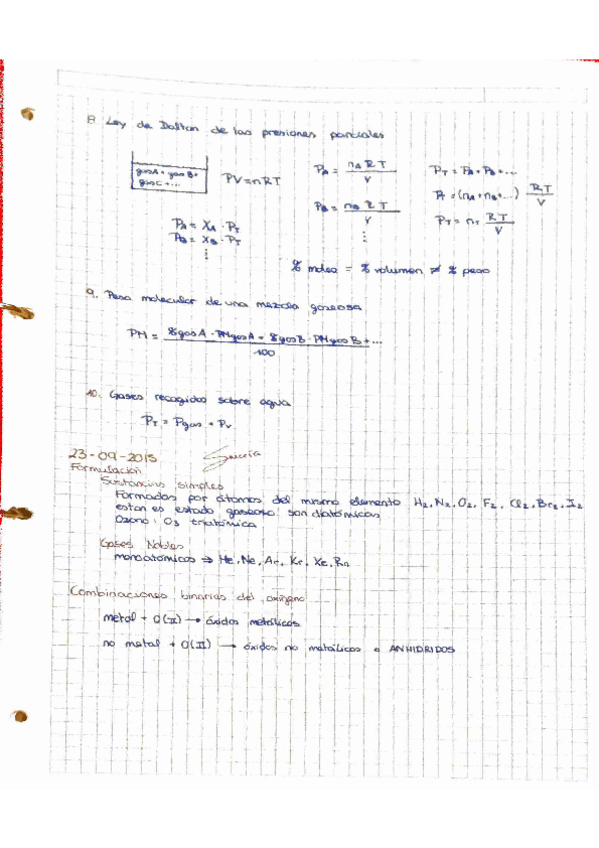 8 Ley de Dalton de las presiones parciales
gas A + gas B +
gas C + ...
PV = nRT
P_A = n_A R T / V
P_B = n_B R T / V
⋮
P_T = P_A + P_B + ...
P_T = (n_A + n_B + ...) RT / V
P_T = n_T RT / V
P_A = X_A · P_T
P_B = X_B · P_T
⋮
% moles = % volumen ≠ % peso
9. Peso molecular de una mezcla gaseosa
PM = %gas A · PM gas A + %gas B · PM gas B + ... / 100
10. Gases recogidos sobre agua
P_T = Pgas + P_v
23-09-2015
Formulación
Sustancias simples
Formadas por átomos del mismo elemento H2, N2, O2, F2, Cl2, Br2, I2
estan es estado gaseoso: son diatómicas
Ozono: O3 triatómica
Gases Nobles
monoatómicos → He, Ne, Ar, Kr, Xe, Rn
Combinaciones binarias del oxígeno
metal + O(II) → óxidos metálicos
no metal + O(II) → óxidos no metálicos o ANHIDRIDOS